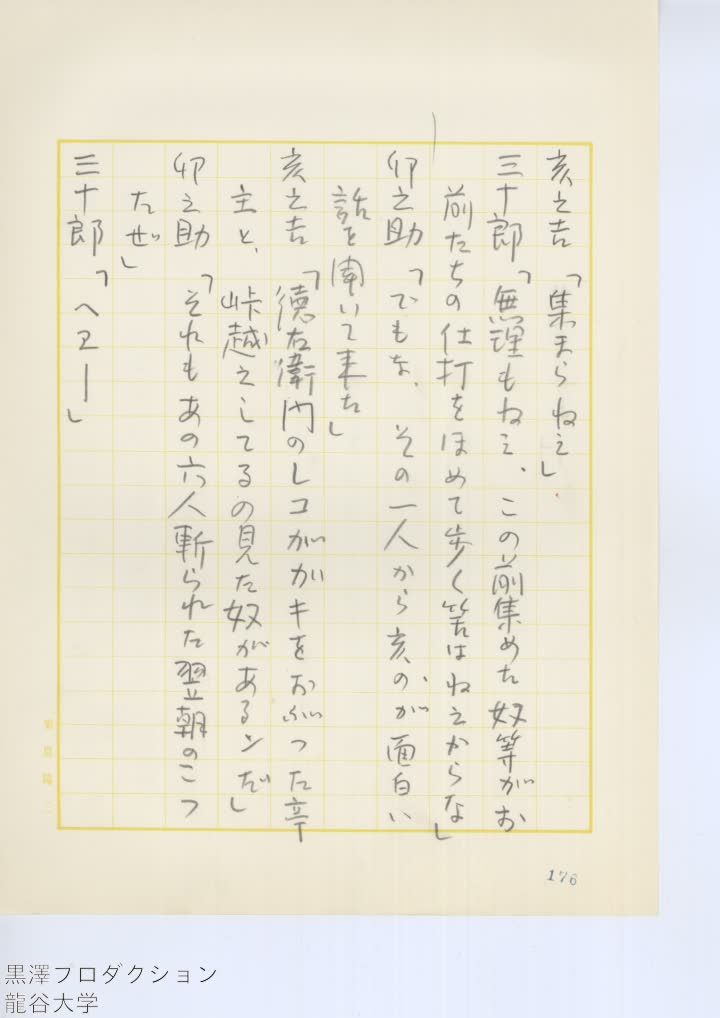 亥之吉「集まらねえ」
三十郎「無理もねえ、この前集めた奴等がお
前たちの仕打をほめて歩く筈はねえからな」
卯之助「でもな、その一人から亥のが面白い
話を聞いて来た」
亥之吉「徳右衛門のレコがガキをおぶった亭
主と、峠越えしてるの見た奴があるンだ」
卯之助「それもあの六人斬られた翌朝のこつ
たぜ」
三十郎「へエー」
176
黒澤プロダクション
龍谷大学